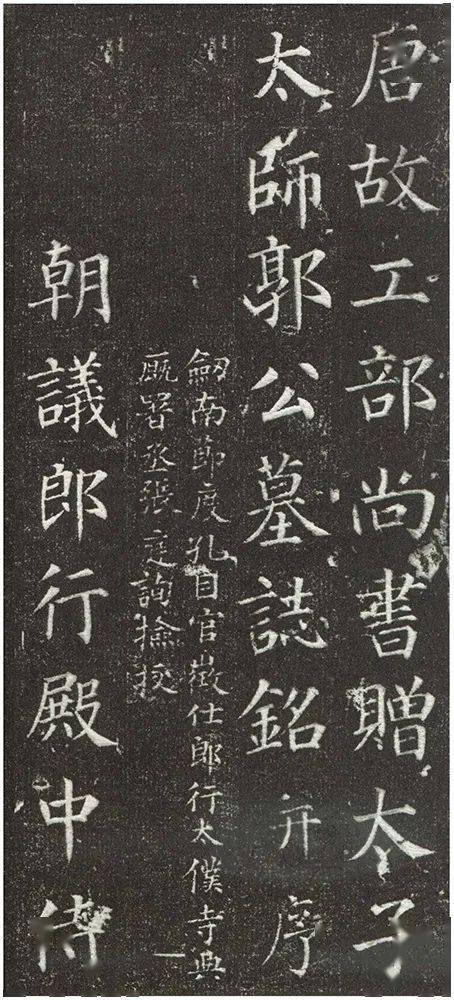 唐故工部尚書贈太子
太師郭公墓誌銘并序
劒南節度孔目官徵仕郎行太僕寺典
厩署丞張庭詢撿挍
朝議郎行殿中侍